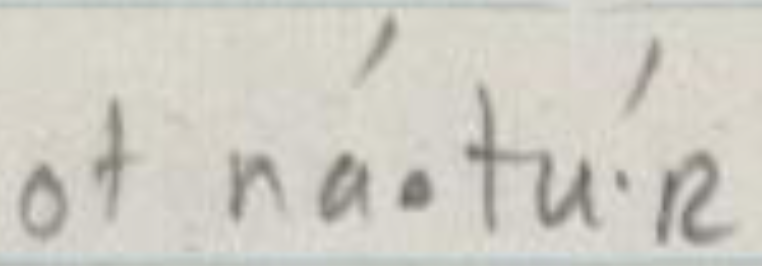 ot ná·tú·R